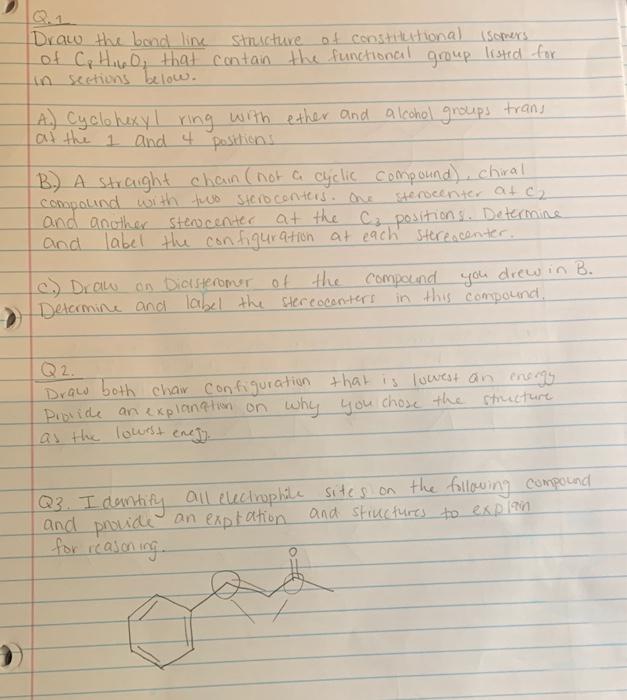 Q.1
Draw the bond line structure of constitutional isomers
of C8H16O2 that contain the functional group listed for
in sections below.
A) Cyclohexyl ring with ether and alcohol groups trans
at the 1 and 4 positions
B.) A straight chain (not a cyclic compound), chiral
compound with two sterocenters. One sterocenter at C2
and another sterocenter at the C3 positions. Determine
and label the configuration at each stereocenter.
C.) Draw on Diasteromer of the compound you drew in B.
Determine and label the stereocenters in this compound.
Q2.
Draw both chair configuration that is lowest an energy
Provide an explanation on why you chose the structure
as the lowest energy.
Q3. Identify all electrophile sites on the following compound
and provide an exptation and structures to explain
for reasoning.
O